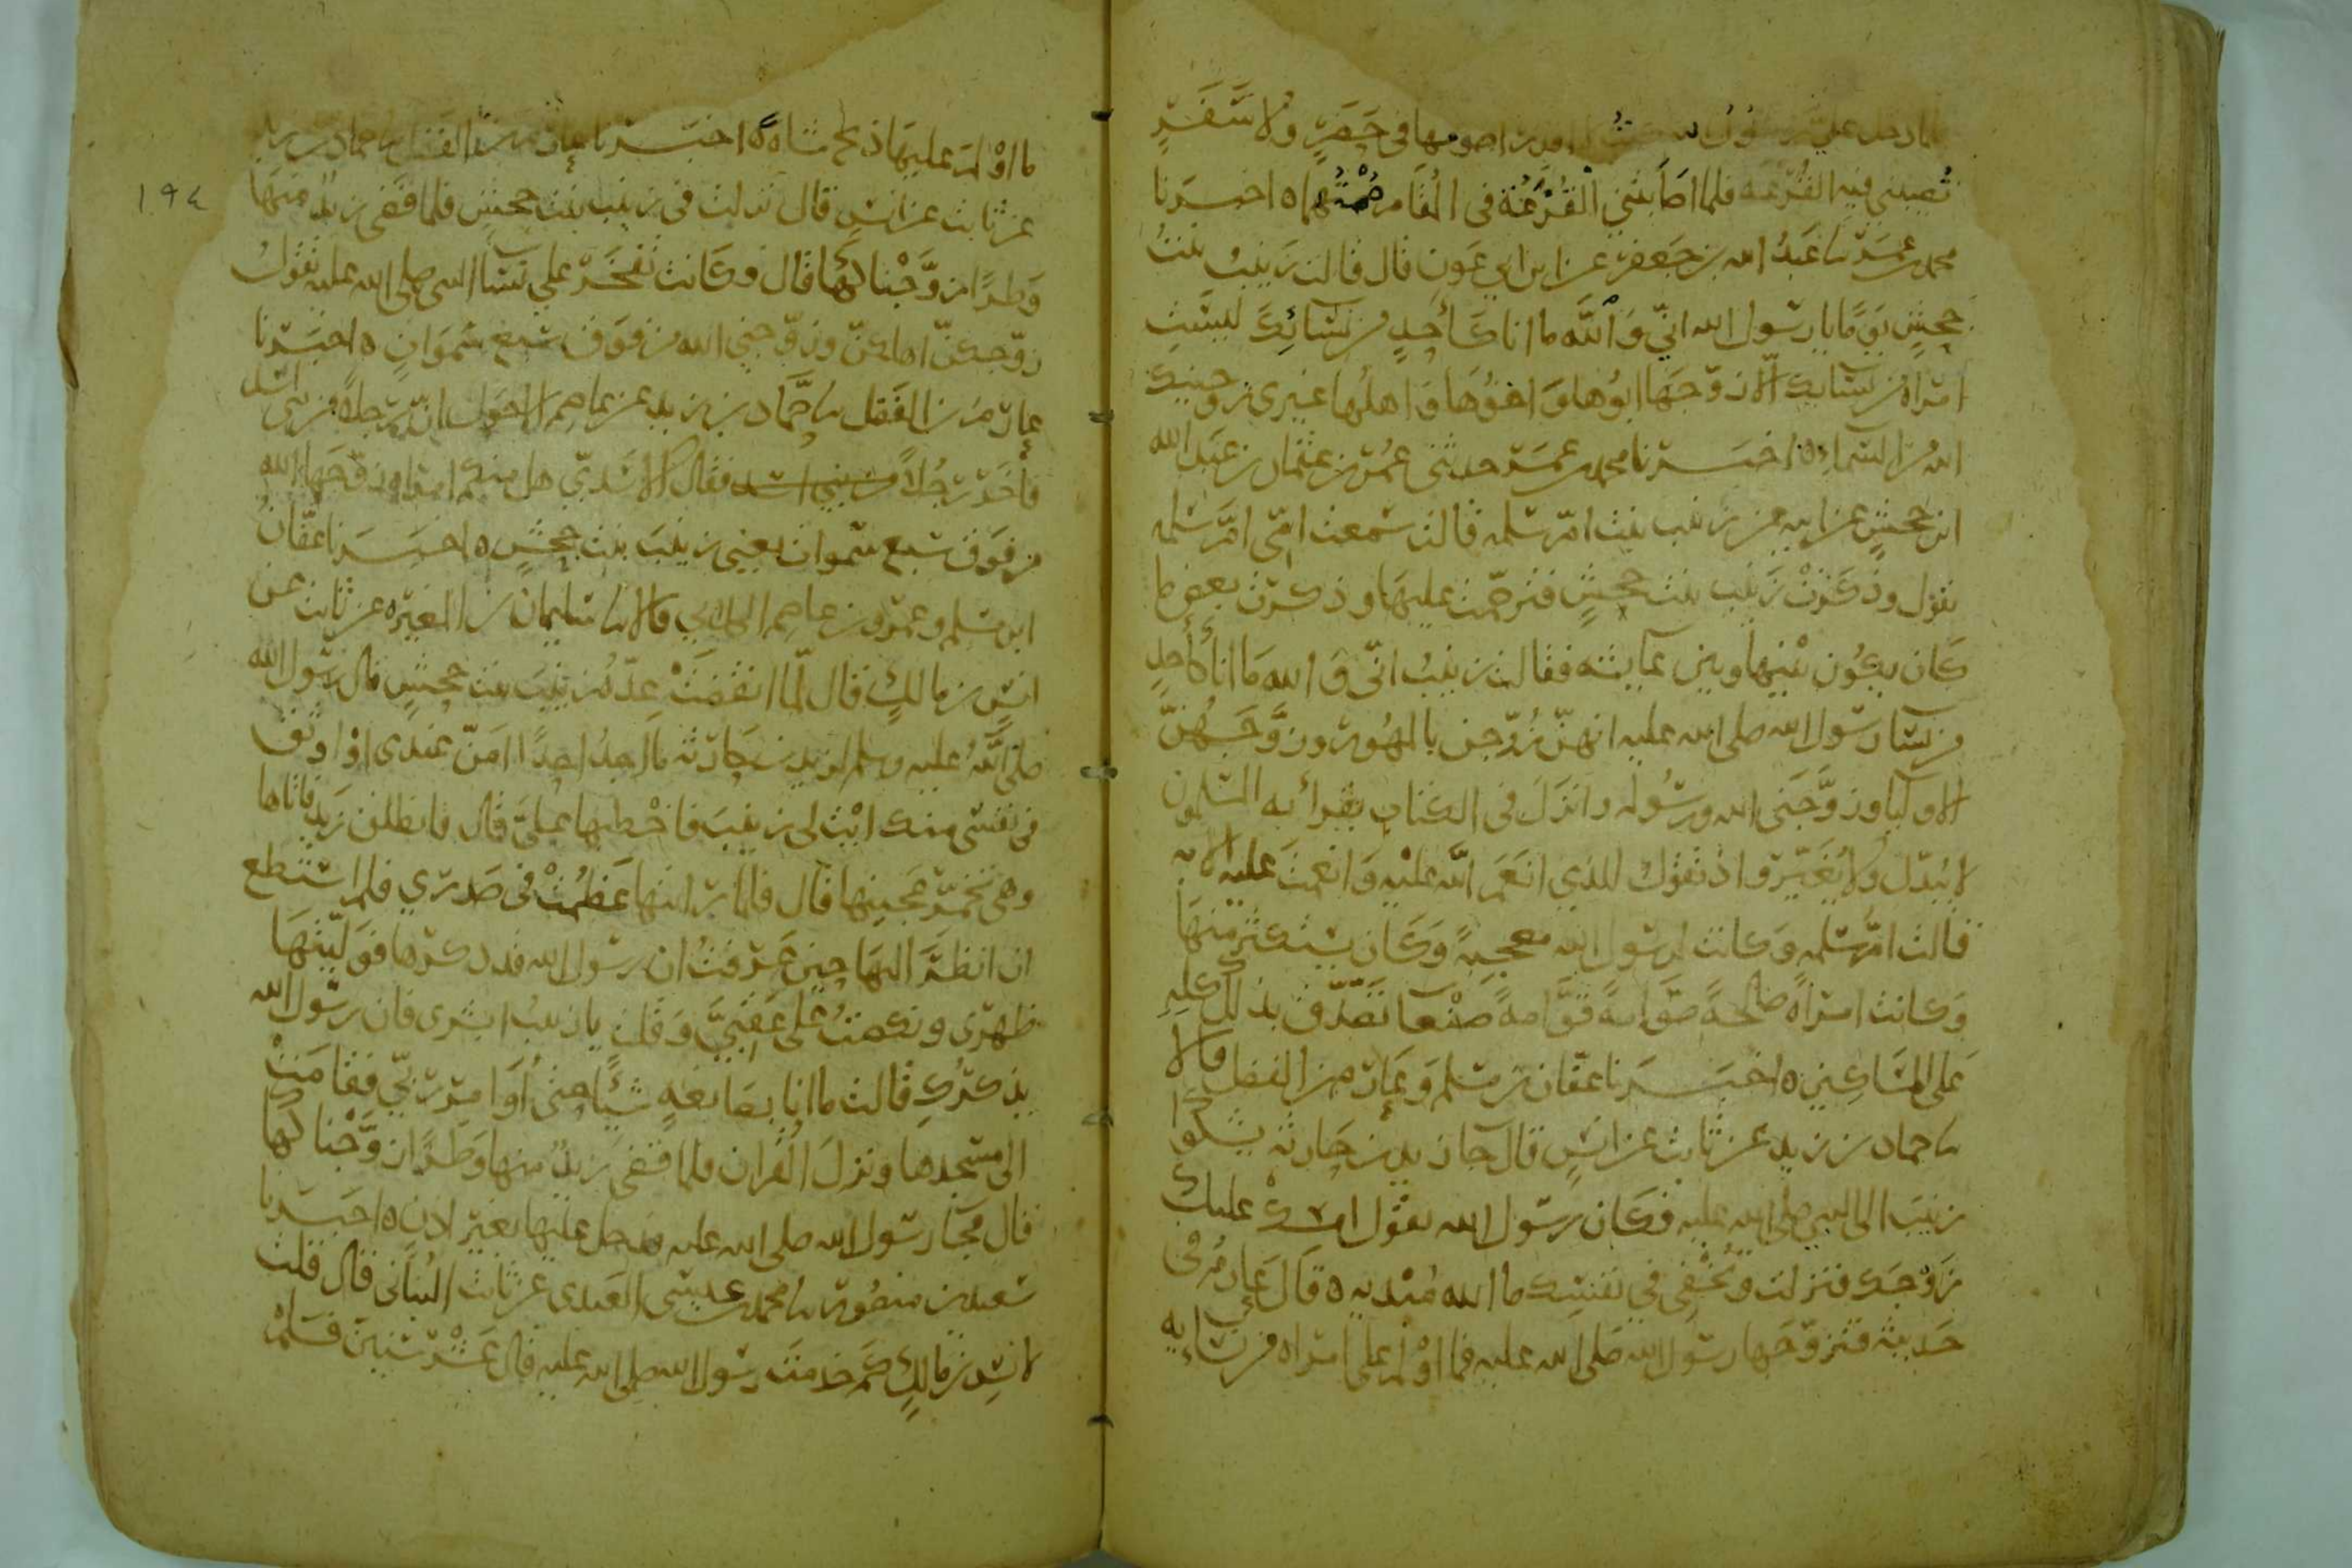 لما دخل علي رسول الله اصومها في حضر ولا سفر
تصيبني فيه القرعة فلما اصابتني القرعة في المقام صمتهما ه اخبرنا
محمد بن عمر نا عبد الله بن جعفر عن ابن ابي عون قال قالت زينب بنت
جحش يوما يا رسول الله اني والله ما انا كأحد من نسائك ليست
امراة من نسايك الا زوجها ابوها واخوها واهلها غيري زوجنيك
الله من السماء ه اخبرنا محمد بن عمر حدثني عمر بن عثمان بن عبد الله
ابن جحش عن ابيه عن زينب بنت ام سلمه قالت سمعت امي ام سلمه
تقول وذكرت زينب بنت جحش فترحمت عليها وذكرت بعض ما
كان يكون بينها وبين عايشه فقالت زينب اني والله ما انا كأحد
من نسا رسول الله صلى الله عليه انهن زوجن بالمهور وزوجهن
الاوليا وزوجني الله ورسوله وانزل في الكتاب يقرأ به المسلمون
لا يبدل ولا يغير واذ تقول للذي انعم الله عليه وانعمت عليه الايه
قالت ام سلمه وكانت لرسول الله معجبة وكان يستكثر منها
وكانت امراة صالحة صوامة قوامة صنعا تصدق بذلك كله
على المساكين ه اخبرنا عفان بن مسلم وعارم بن الفضل قالا
نا حماد بن زيد عن ثابت عن انس قال جا زيد بن حارثه يشكوا
زينب الى النبي صلى الله عليه فكان رسول الله يقول امسك عليك
زوجك فنزلت وتخفي في نفسك ما الله مبديه ه قال عارم في
حديثه فتزوجها رسول الله صلى الله عليه فما اولم على امراه من نسايه
ما اولم عليها ذبح شاه ه اخبرنا عارم بن الفضل نا حماد بن زيد
عن ثابت عن انس قال نزلت في زينب بنت جحش فلما قضى زيد منها
وطرا زوجناكها قال وكانت تفخر على نسا النبي صلى الله عليه تقول
زوجكن اهلكن وزوجني الله من فوق سبع سموات ه اخبرنا
عارم بن الفضل نا حماد بن زيد عن عاصم الاحول ان رجلا من بني اسد
فاخر رجلا من بني اسد فقال الاسدي هل منكم امراه زوجها الله
من فوق سبع سموات يعني زينب بنت جحش ه اخبرنا عفان
ابن مسلم وعمرو بن عاصم الكلابي قالا نا سليمان بن المغيره عن ثابت عن
انس بن مالك قال لما انقضت عدة زينب بنت جحش قال رسول الله
صلى الله عليه وسلم لزيد بن حارثه ما اجد احدا امن عندي او اوثق
في نفسي منك ايت لي زينب فاخطبها علي قال فانطلق زيد فاتاها
وهي تخمر عجينها قال فلما رايتها عظمت في صدري فلم استطع
ان انظر اليها حين عرفت ان رسول الله قد ذكرها فوليتها
ظهري ونكصت على عقبي وقلت يا زينب ابشري فان رسول الله
يذكرك قالت ما انا بصانعة شيئا حتى اوامر ربي فقامت
الى مسجدها ونزل القران فلما قضى زيد منها وطرا زوجناكها
قال فجا رسول الله صلى الله عليه فدخل عليها بغير اذن ه اخبرنا
سعيد بن منصور نا محمد بن عيسى العبدي عن ثابت البناني قال قلت
لانس بن مالك كم خدمت رسول الله صلى الله عليه قال عشر سنين فلم
١٩٤